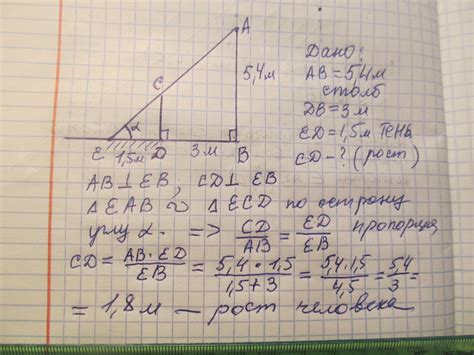 A
C
α
5,4м
E 1,5м D 3м B
Дано:
AB = 5,4м
столб
DB = 3м
ED = 1,5м тень
CD - ? (рост)
AB ⊥ EB; CD ⊥ EB
Δ EAB ∾ Δ ECD по острому
углу α. => CD/AB = ED/EB пропорция
CD = AB · ED/EB = 5,4 · 1,5/1,5+3 = 5,4·1,5/4,5 = 5,4/3 =
= 1,8 м — рост человека